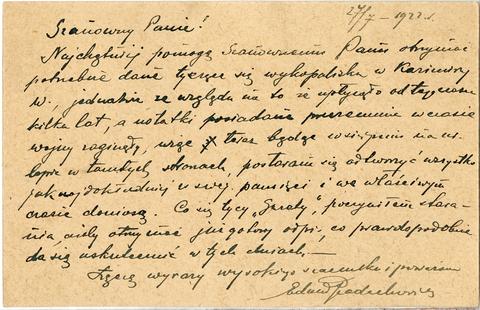 27/7 – 1922 r.
Szanowny Panie!
Najchętniej pomogę Szanownemu Panu otrzymać
potrzebne dane tyczące się wykopaliska w Kazimierzy
W., jednakże ze względu na to że upłynęło od tego czasu
kilka lat, a notatki posiadane przezemnie w czasie
wojny zaginęły, więc teraz będąc w sierpniu na ur-
lopie w tamtych stronach, postaram się odtworzyć wszystko
jak najdokładniej w swej pamięci i we właściwym
czasie doniosę. Co się tyczy poczyniłem stara-
nia ażeby otrzymać już gotowy odpis, co prawdopodobnie
da się uskutecznić w tych dniach. –
Łączę wyrazy wysokiego szacunku i